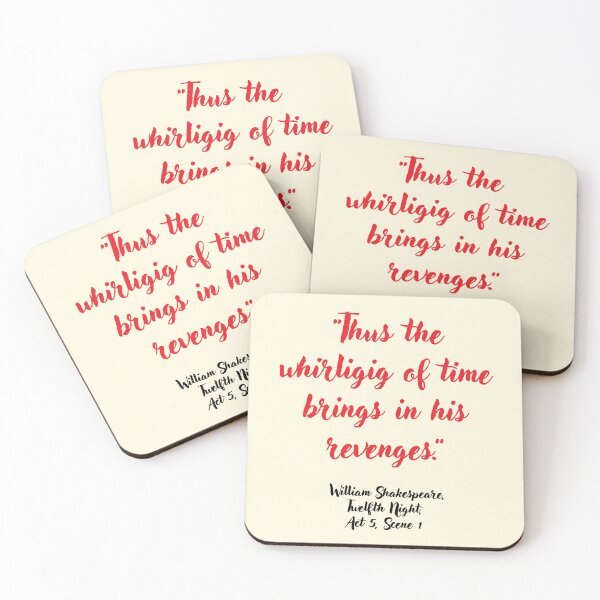 “Thus the
whirligig of time
brings in his
“Thus the
whirligig of time
brings in his
revenges.”
“Thus the
whirligig of time
brings in his
revenges.”
William
Twelfth
Act 5,
“Thus the
whirligig of time
brings in his
revenges.”
William Shakespeare,
Twelfth Night,
Act 5, Scene 1